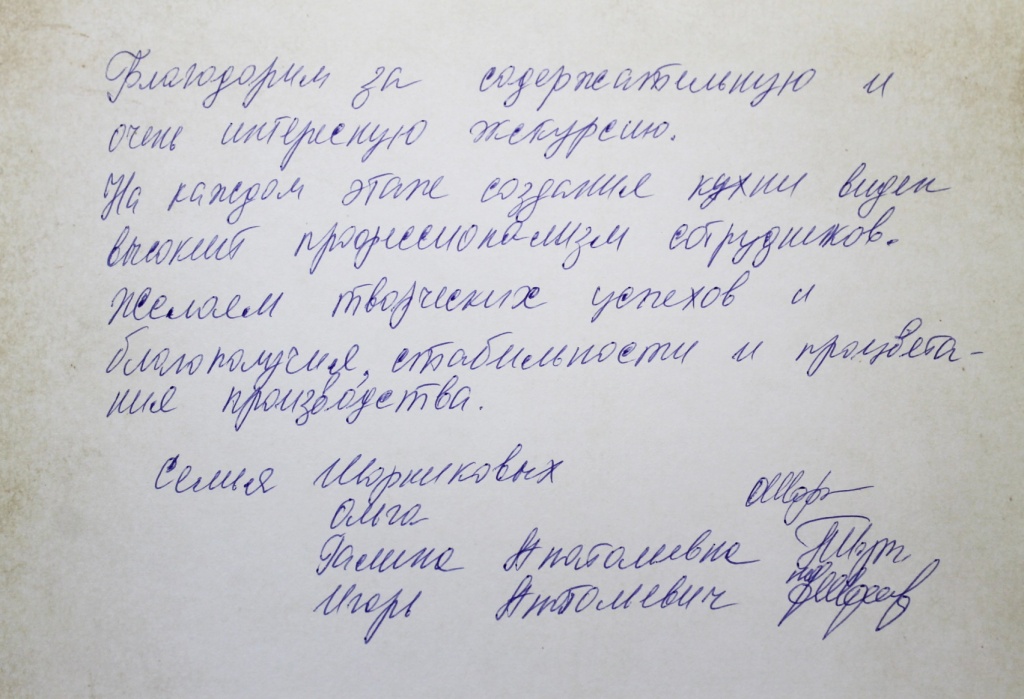 Благодарим за содержательную и
очень интересную экскурсию.
На каждом этапе создания кухни виден
высокий профессионализм сотрудников.
Желаем творческих успехов и
благополучия, стабильности и процвета-
ния производства.
Семья Шорниковых
Ольга
Галина Анатолиевна
Игорь Анатолиевич